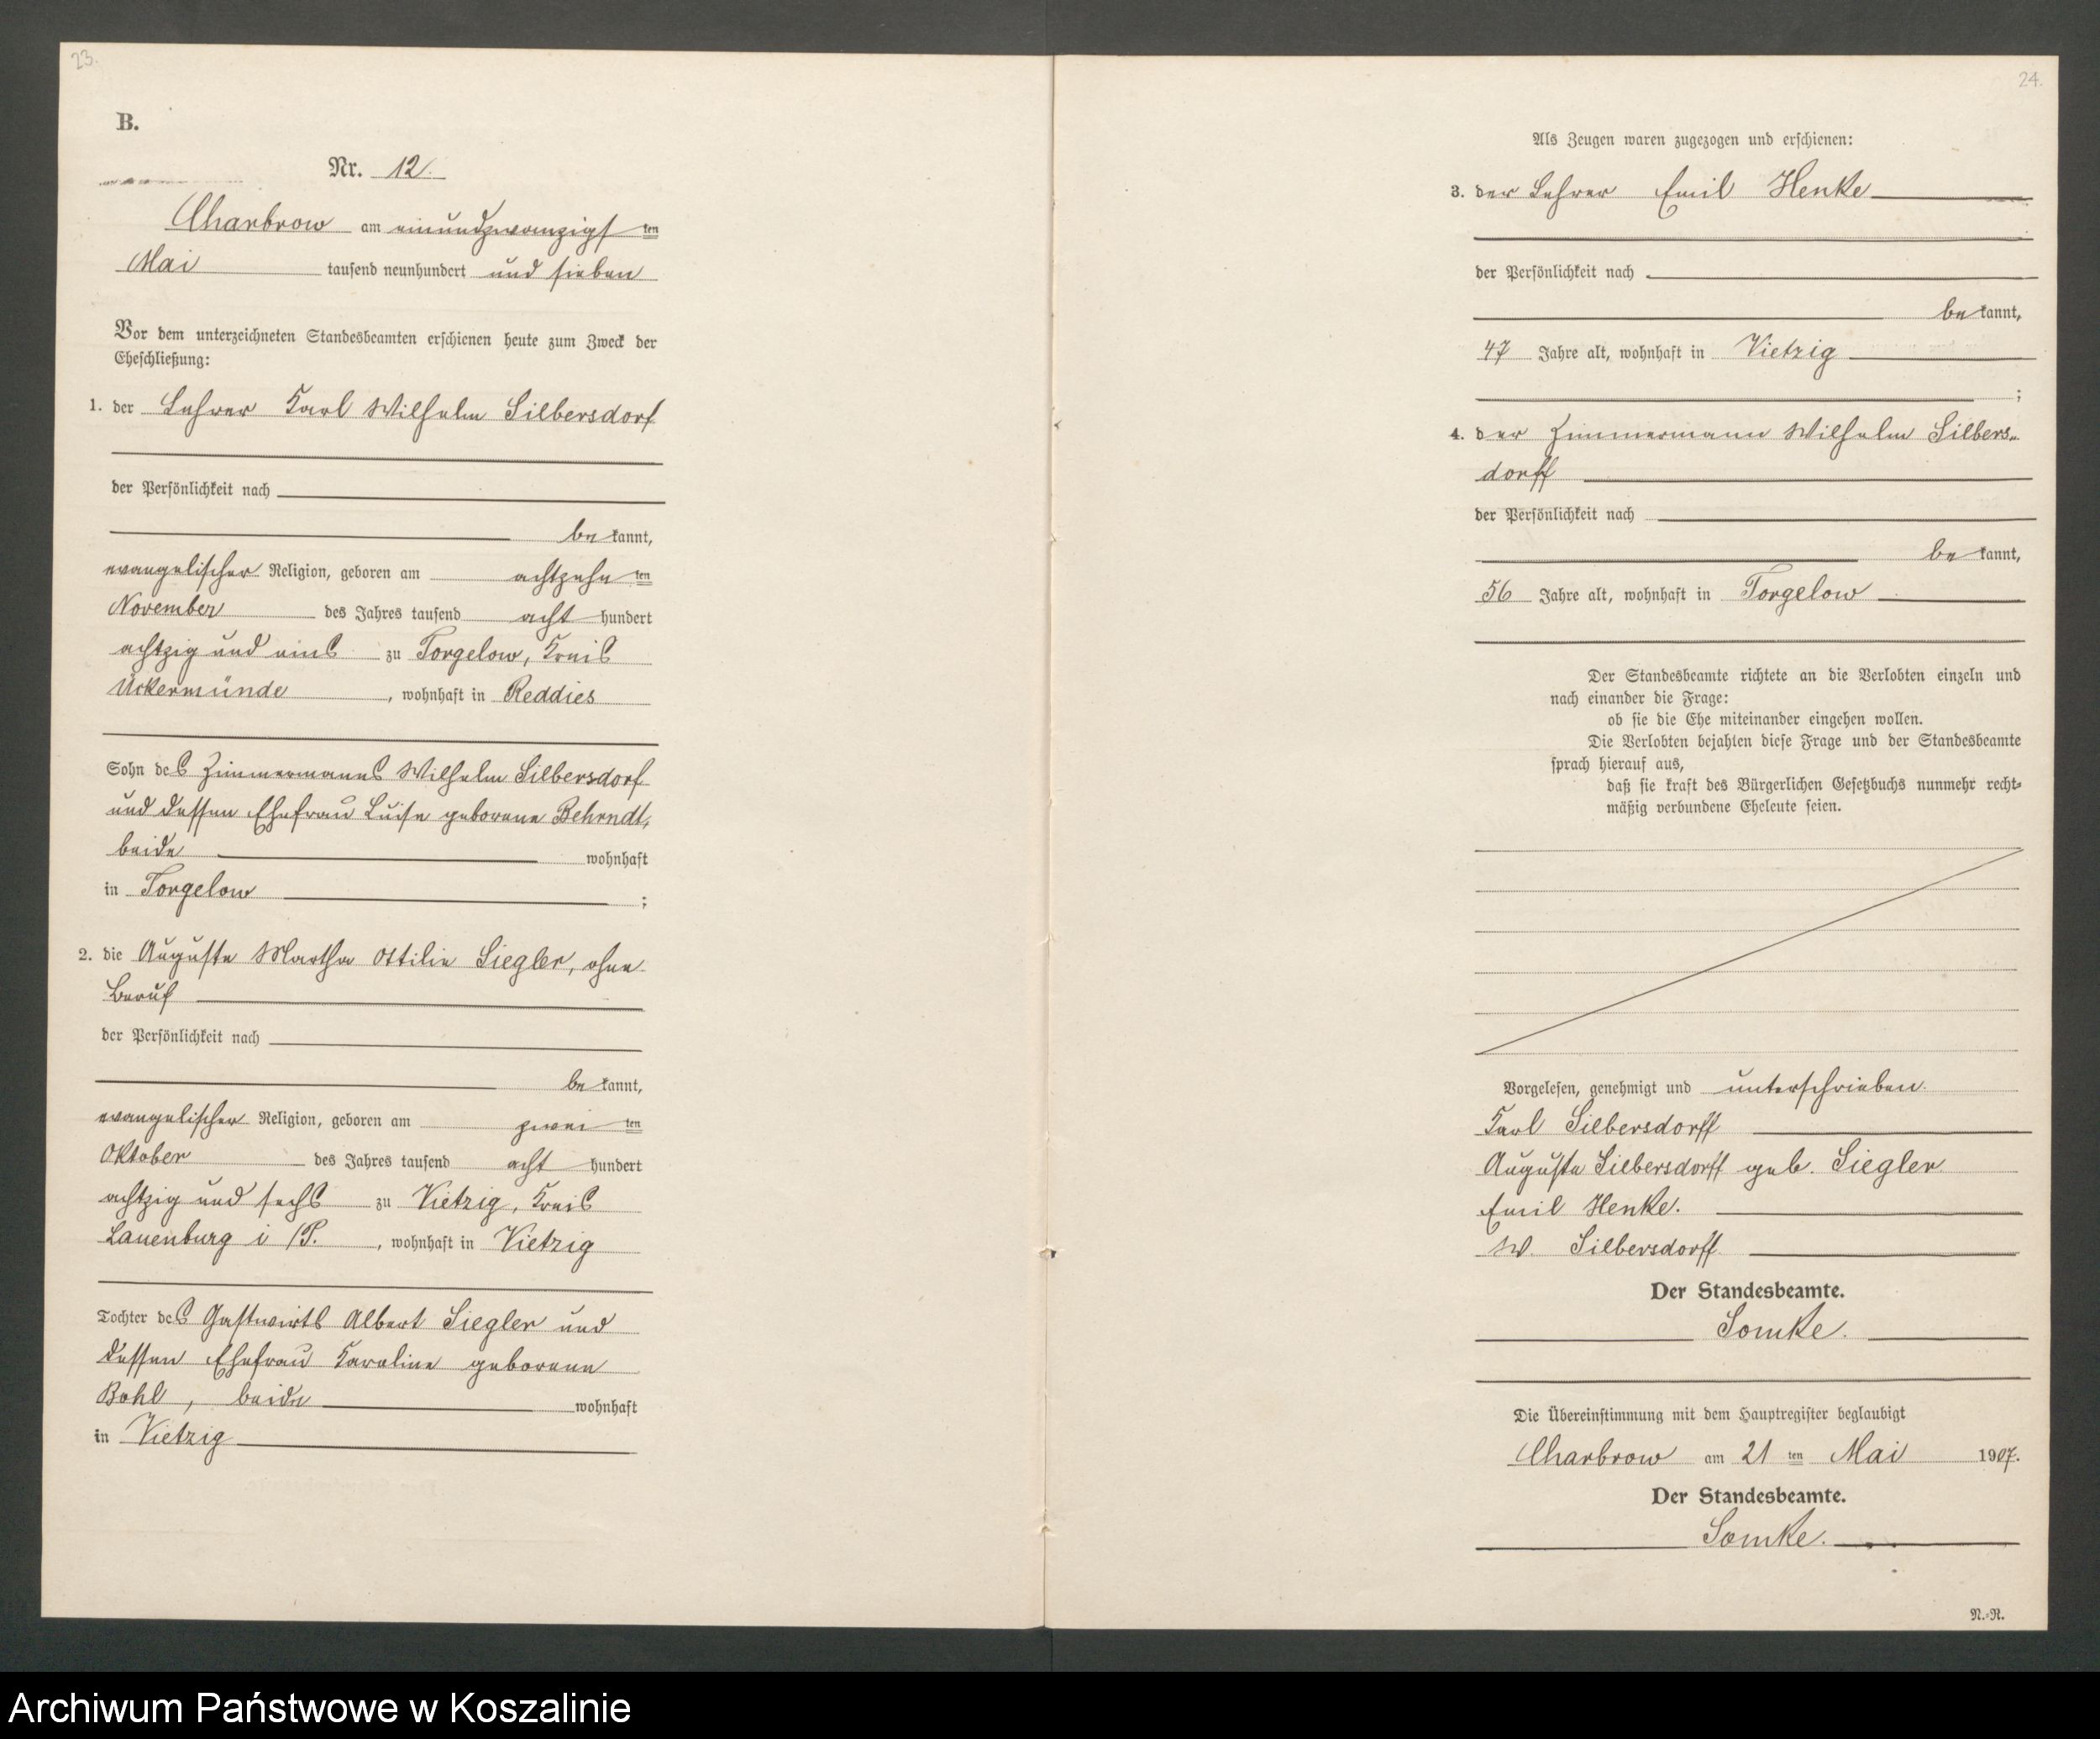 23.
B.
Nr. 12.
Charbrow am einundzwanzigsten
Mai tausend neunhundert und sieben
Vor dem unterzeichneten Standesbeamten erschienen heute zum Zweck der
Eheschließung:
1. der Lehrer Karl Wilhelm Silbersdorf
der Persönlichkeit nach
bekannt,
evangelischer Religion, geboren am achtzehnten
November des Jahres tausend acht hundert
achtzig und eins zu Torgelow, Kreis
Ückermünde, wohnhaft in Reddies
Sohn des Zimmermanns Wilhelm Silbersdorf
und dessen Ehefrau Luise geborene Behrndt,
beide wohnhaft
in Torgelow ;
2. die Auguste Martha Ottilie Siegler, ohne
Beruf
der Persönlichkeit nach
bekannt,
evangelischer Religion, geboren am zweiten
Oktober des Jahres tausend acht hundert
achtzig und sechs zu Vietzig, Kreis
Lauenburg i/P., wohnhaft in Vietzig
Tochter des Gastwirts Albert Siegler und
dessen Ehefrau Karoline geborene
Bohl, beide wohnhaft
in Vietzig
24.
Als Zeugen waren zugezogen und erschienen:
3. der Lehrer Emil Henke
der Persönlichkeit nach
bekannt,
47 Jahre alt, wohnhaft in Vietzig
;
4. der Zimmermann Wilhelm Silbers-
dorff
der Persönlichkeit nach
bekannt,
56 Jahre alt, wohnhaft in Torgelow
Der Standesbeamte richtete an die Verlobten einzeln und
nach einander die Frage:
ob sie die Ehe miteinander eingehen wollen.
Die Verlobten bejahten diese Frage und der Standesbeamte
sprach hierauf aus,
daß sie kraft des Bürgerlichen Gesetzbuchs nunmehr recht-
mäßig verbundene Eheleute seien.
Vorgelesen, genehmigt und unterschrieben.
Karl Silbersdorff
Auguste Silbersdorff geb. Siegler
Emil Henke.
W. Silbersdorff
Der Standesbeamte.
Somke.
Die Übereinstimmung mit dem Hauptregister beglaubigt
Charbrow am 21ten Mai 1907.
Der Standesbeamte.
Somke.
N.-N.
Archiwum Państwowe w Koszalinie